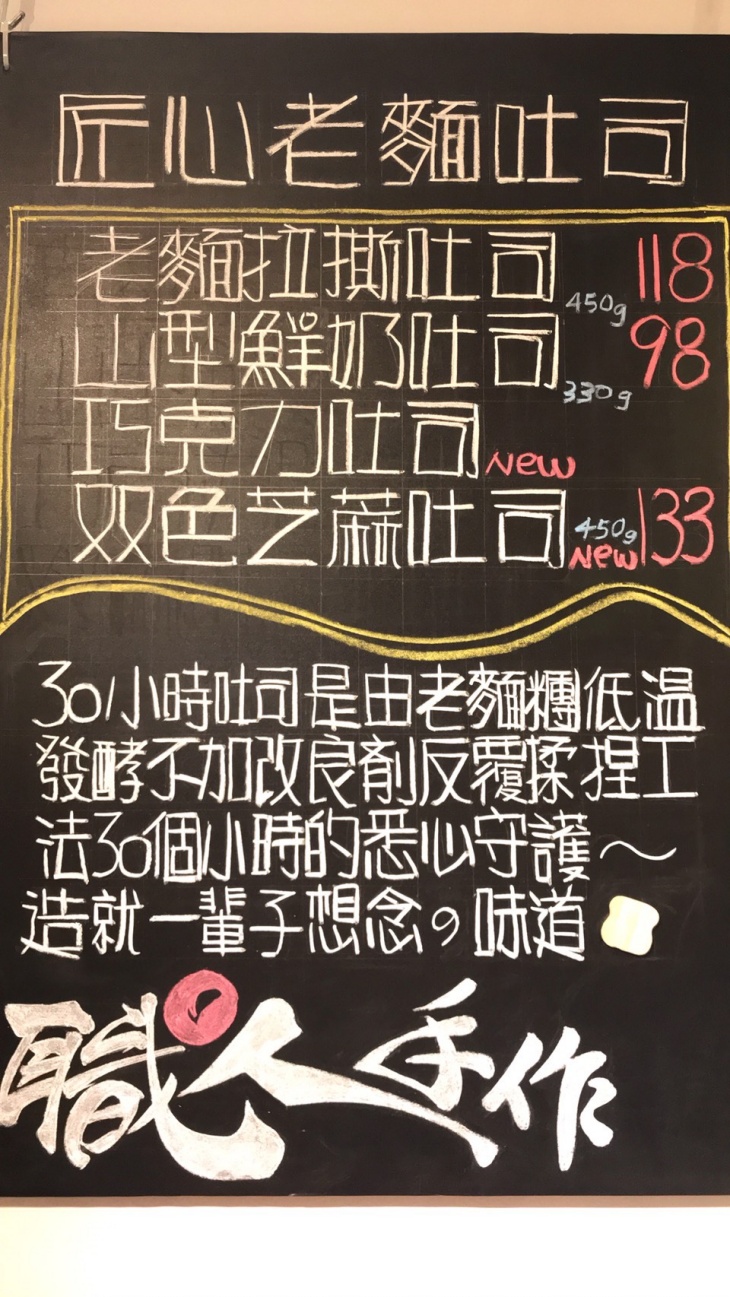 匠心老麵吐司
老麵拉撕吐司 450g 118
山型鮮奶吐司 330g 98
巧克力吐司 New
双色芝蔴吐司 450g New 133
30小時吐司是由老麵糰低温
發酵不加改良劑反覆揉捏工
法30個小時的悉心守護～
造就一輩子想念の味道
職人手作